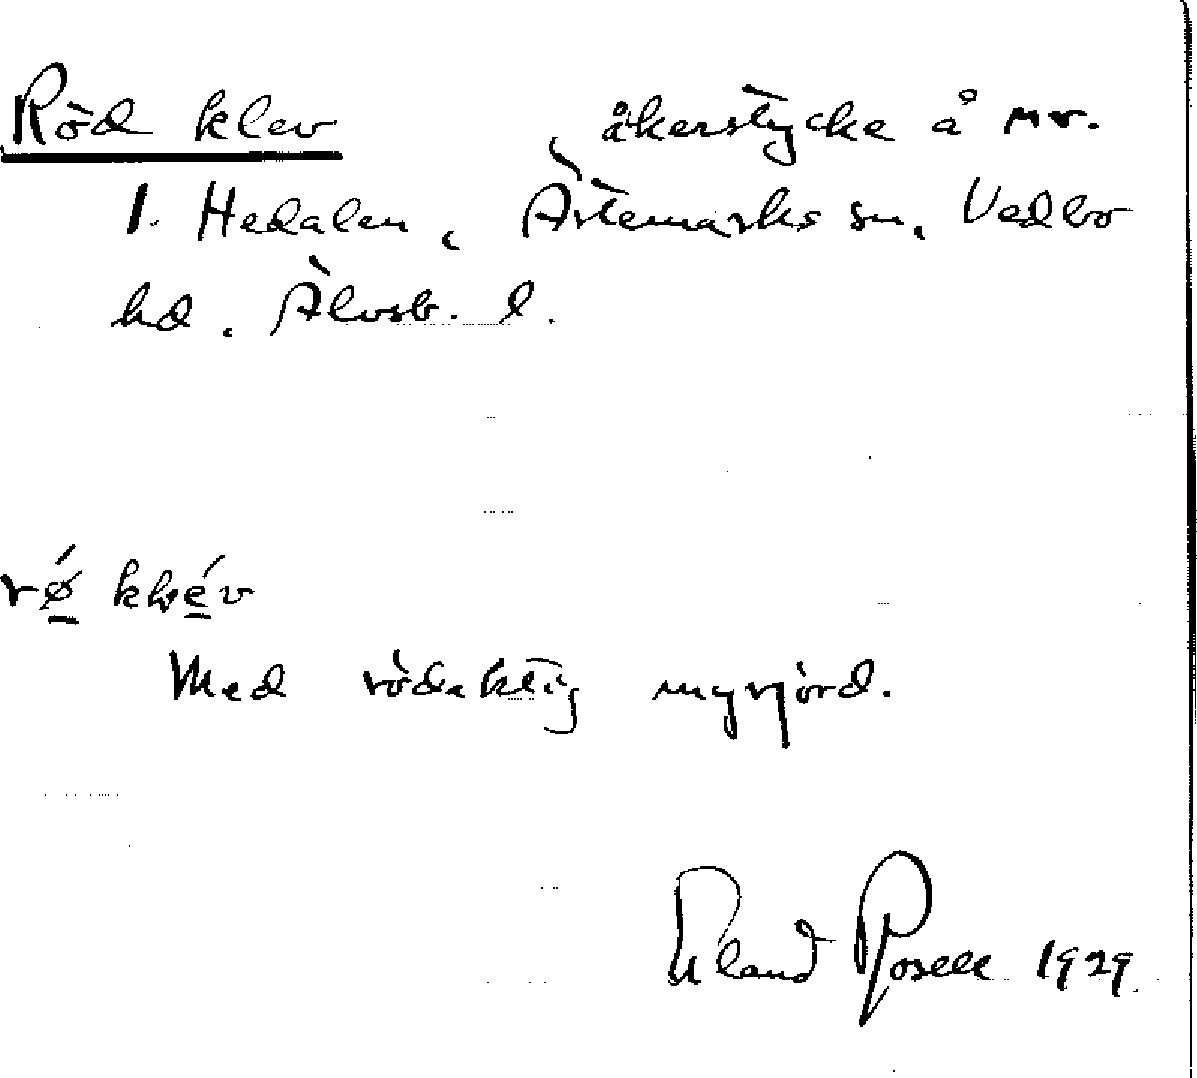 Röd klev , åkerstycke å nr.
1. Hedalen, Ärtemarks sn, Vedbo
hd, Älvsb. l.
rǿ klév
Med rödaktig myrjord.
Erland Rosell 1929.